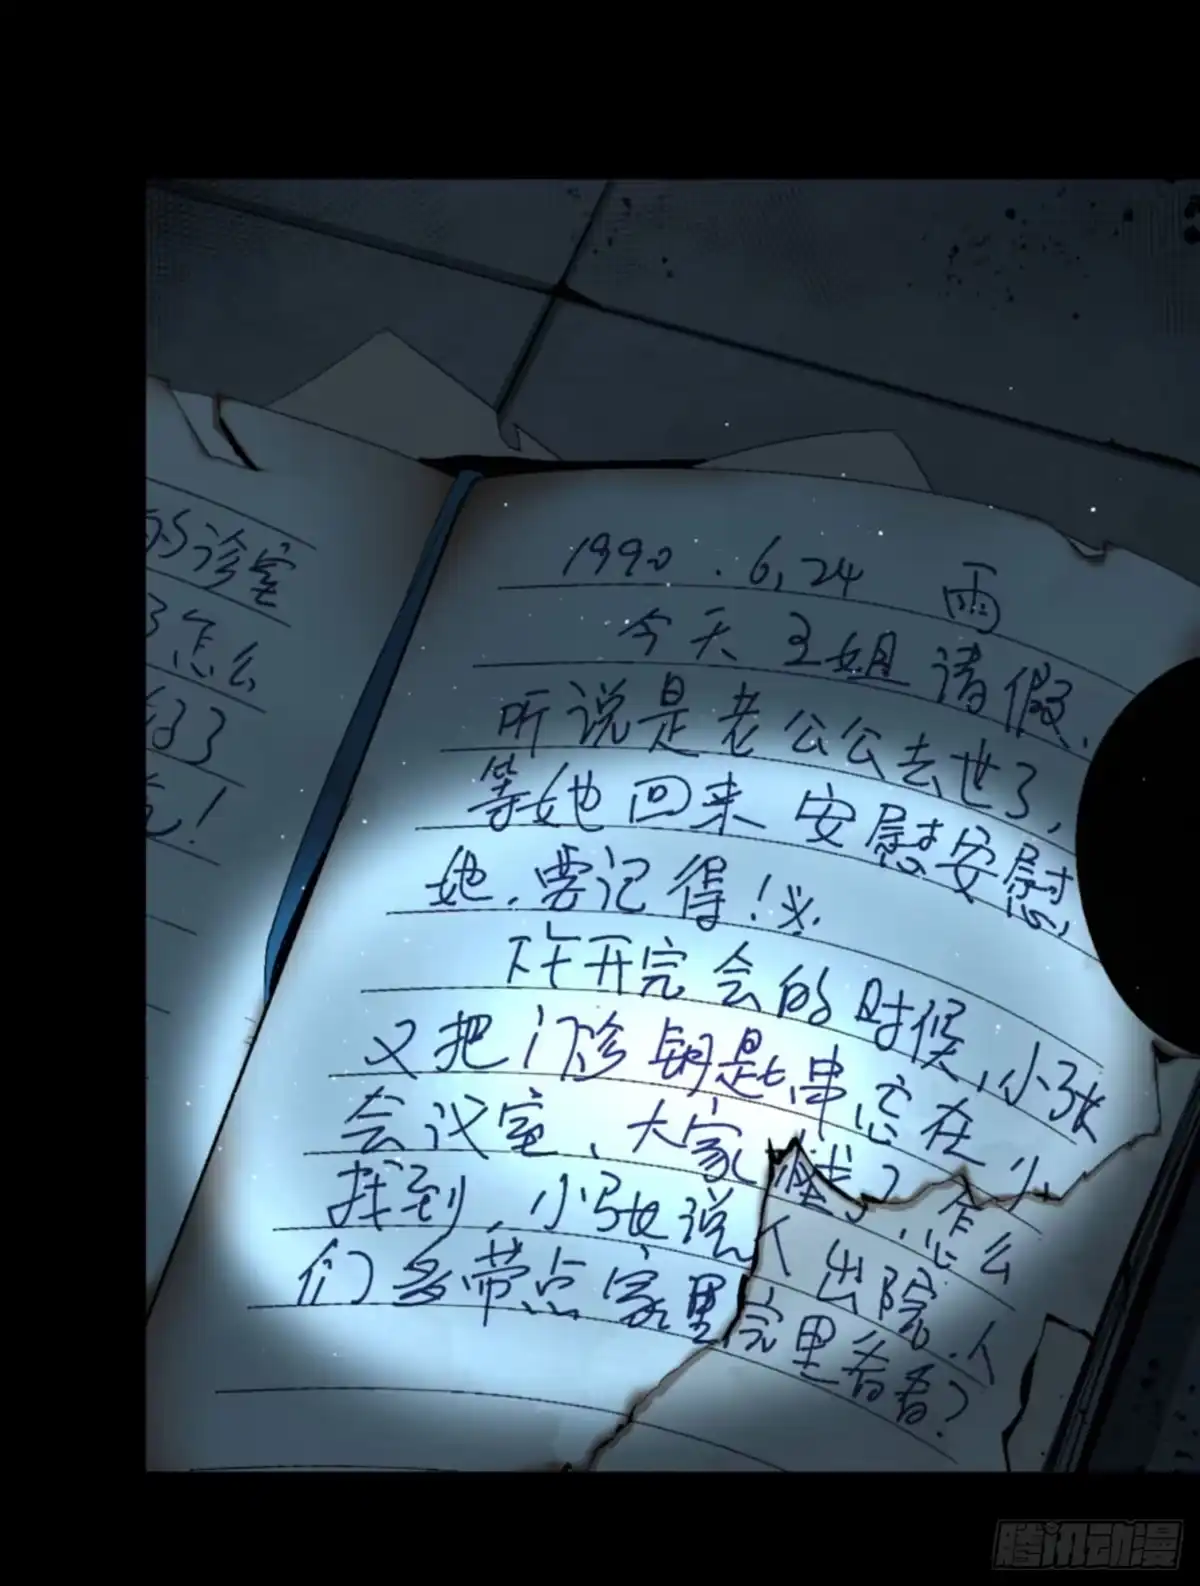 的诊室
了怎么
好了
！
1990.6,24 雨
今天王姐请假，
听说是老公公去世了，
等她回来安慰安慰
她，要记得！
在开完会的时候，小张
又把门诊钥匙串忘在
会议室、大家
找到，小张说人出院，人
们多带点家里完里看看？
了，怎么
小
腾讯动漫